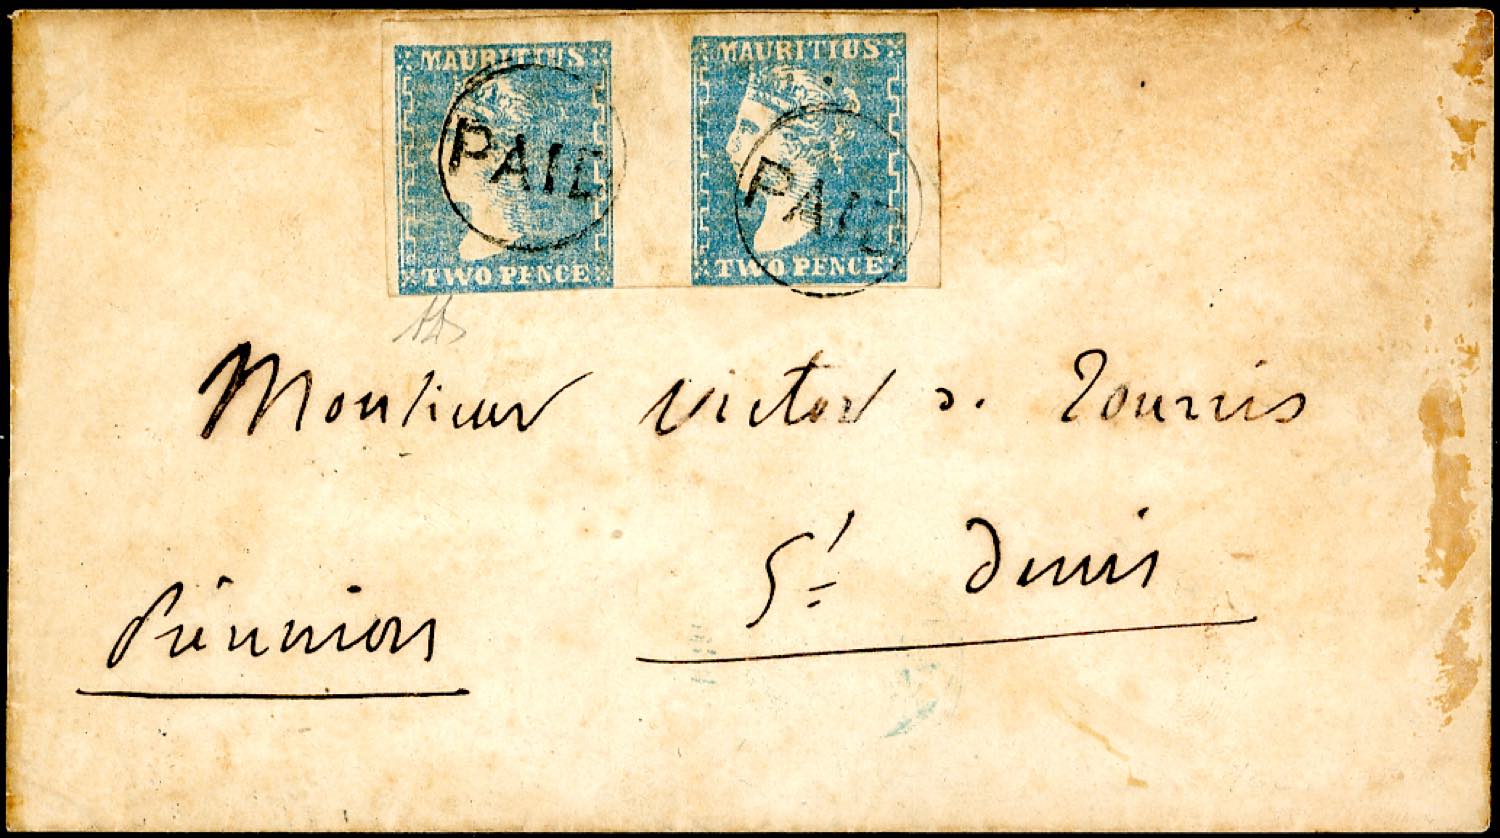 MAURITIUS MAURITIUS
PAID PAID
TWO PENCE TWO PENCE
Monsieur Victor d. Tourris
St Denis
Réunion